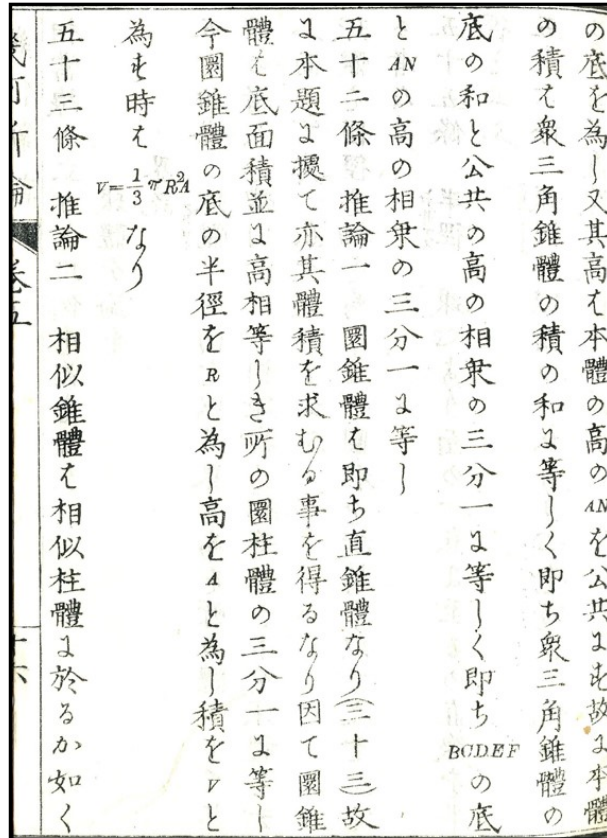 の底を為し又其高は本體の高のANを公共にす故に本體
の積は衆三角錐體の積の和に等しく即ち衆三角錐體の
底の和と公共の高の相乗の三分一に等しく即ちBCDEFの底
とANの高の相乗の三分一に等し
五十二條 推論一 圜錐體は即ち直錐體なり(三十三)故
に本題に據て亦其體積を求むる事を得るなり因て圜錐
體は底面積並に高相等しき所の圜柱體の三分一に等し
今圜錐體の底の半徑をRと為し高をAと為し積をVと
為す時は V=1/3πR²A なり
五十三條 推論二 相似錐體は相似柱體に於るか如く
卷五
十六